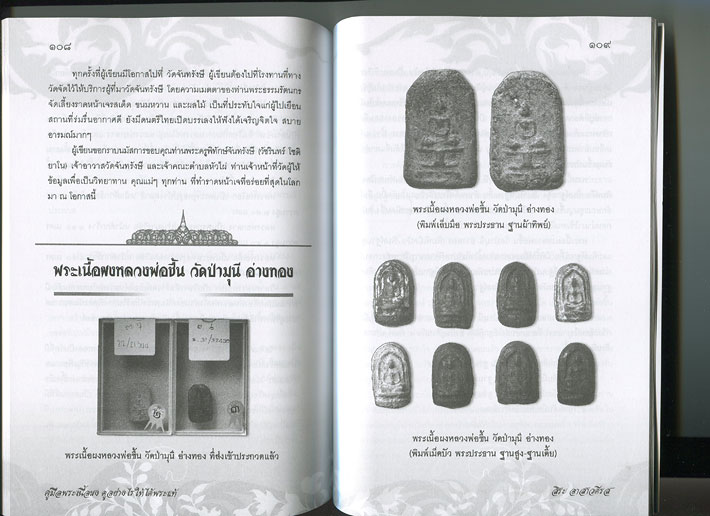 ๑๐๘
ทุกครั้งที่ผู้เขียนมีโอกาสไปที่ วัดจันทรังษี ผู้เขียนต้องไปที่โรงทานที่ทาง
วัดจัดไว้ให้บริการผู้ที่มาวัดจันทรังษี โดยความเมตตาของท่านพระธรรมรัตนากร
จัดเลี้ยงราดหน้าเจรสเด็ด ขนมหวาน และผลไม้ เป็นที่ประทับใจแก่ผู้ไปเยือน
สถานที่ร่มรื่นอากาศดี ยังมีดนตรีไทยเปิดบรรเลงให้ฟังได้เจริญจิตใจ สบาย
อารมณ์มากๆ
ผู้เขียนขอกราบนมัสการขอบคุณท่านพระครูพิทักษ์จันทรังษี (วัชรินทร์ โชติ
ยาโน) เจ้าอาวาสวัดจันทรังษี และเจ้าคณะตำบลหัวไผ่ ท่านเจ้าหน้าที่วัดผู้ให้
ข้อมูลเพื่อเป็นวิทยาทาน คุณแม่ๆ ทุกท่าน ที่ทำราดหน้าเจที่อร่อยที่สุดในโลก
มา ณ โอกาสนี้
พระเนื้อผงหลวงพ่อชื้น วัดป่ามุนี อ่างทอง
พระเนื้อผงหลวงพ่อชื้น วัดป่ามุนี อ่างทอง ที่ส่งเข้าประกวดแล้ว
คู่มือพระเนื้อผง ดูอย่างไรให้ได้พระแท้
๑๐๙
พระเนื้อผงหลวงพ่อชื้น วัดป่ามุนี อ่างทอง
(พิมพ์เล็บมือ พระประธาน ฐานผ้าทิพย์)
พระเนื้อผงหลวงพ่อชื้น วัดป่ามุนี อ่างทอง
(พิมพ์เม็ดบัว พระประธาน ฐานสูง-ฐานเตี้ย)